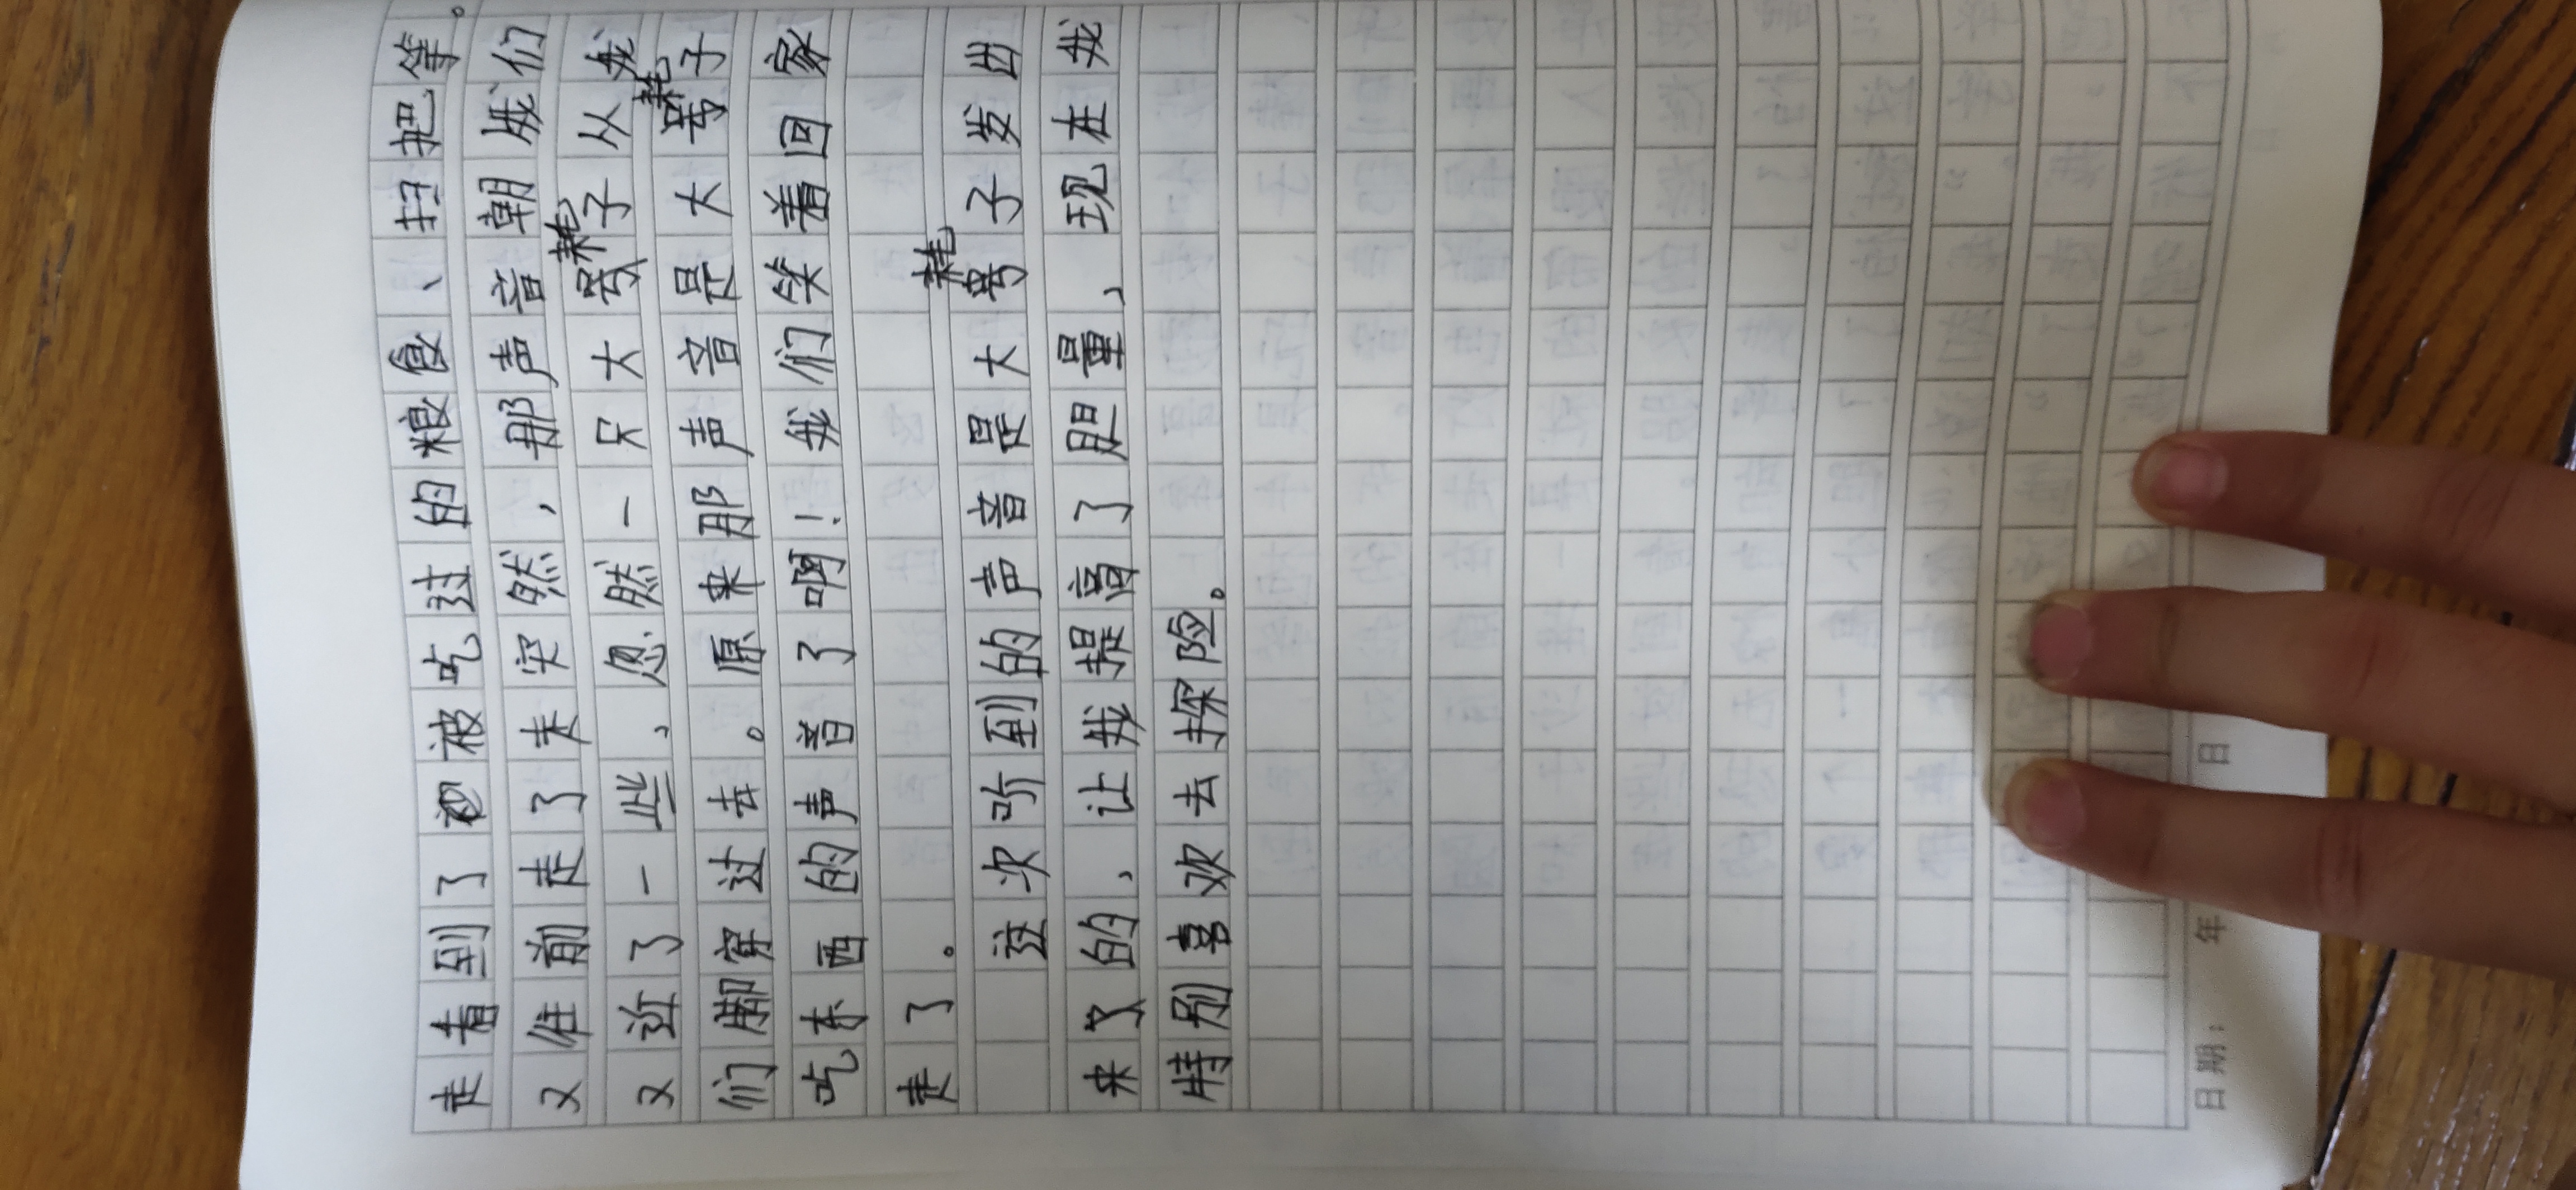 走着到了被吃过的粮食、扫把等。
又往前走了走突然,那声音朝我们
又近了一些、忽然一只大耗子从我
们脚穿过去。原来那声音是大耗子
吃东西的声音了啊!我们笑着回家
走了。
这次听到的声音是大耗子发出
来的,让我提高了胆量、现在我
特别喜欢去探险。
日期: 年 日